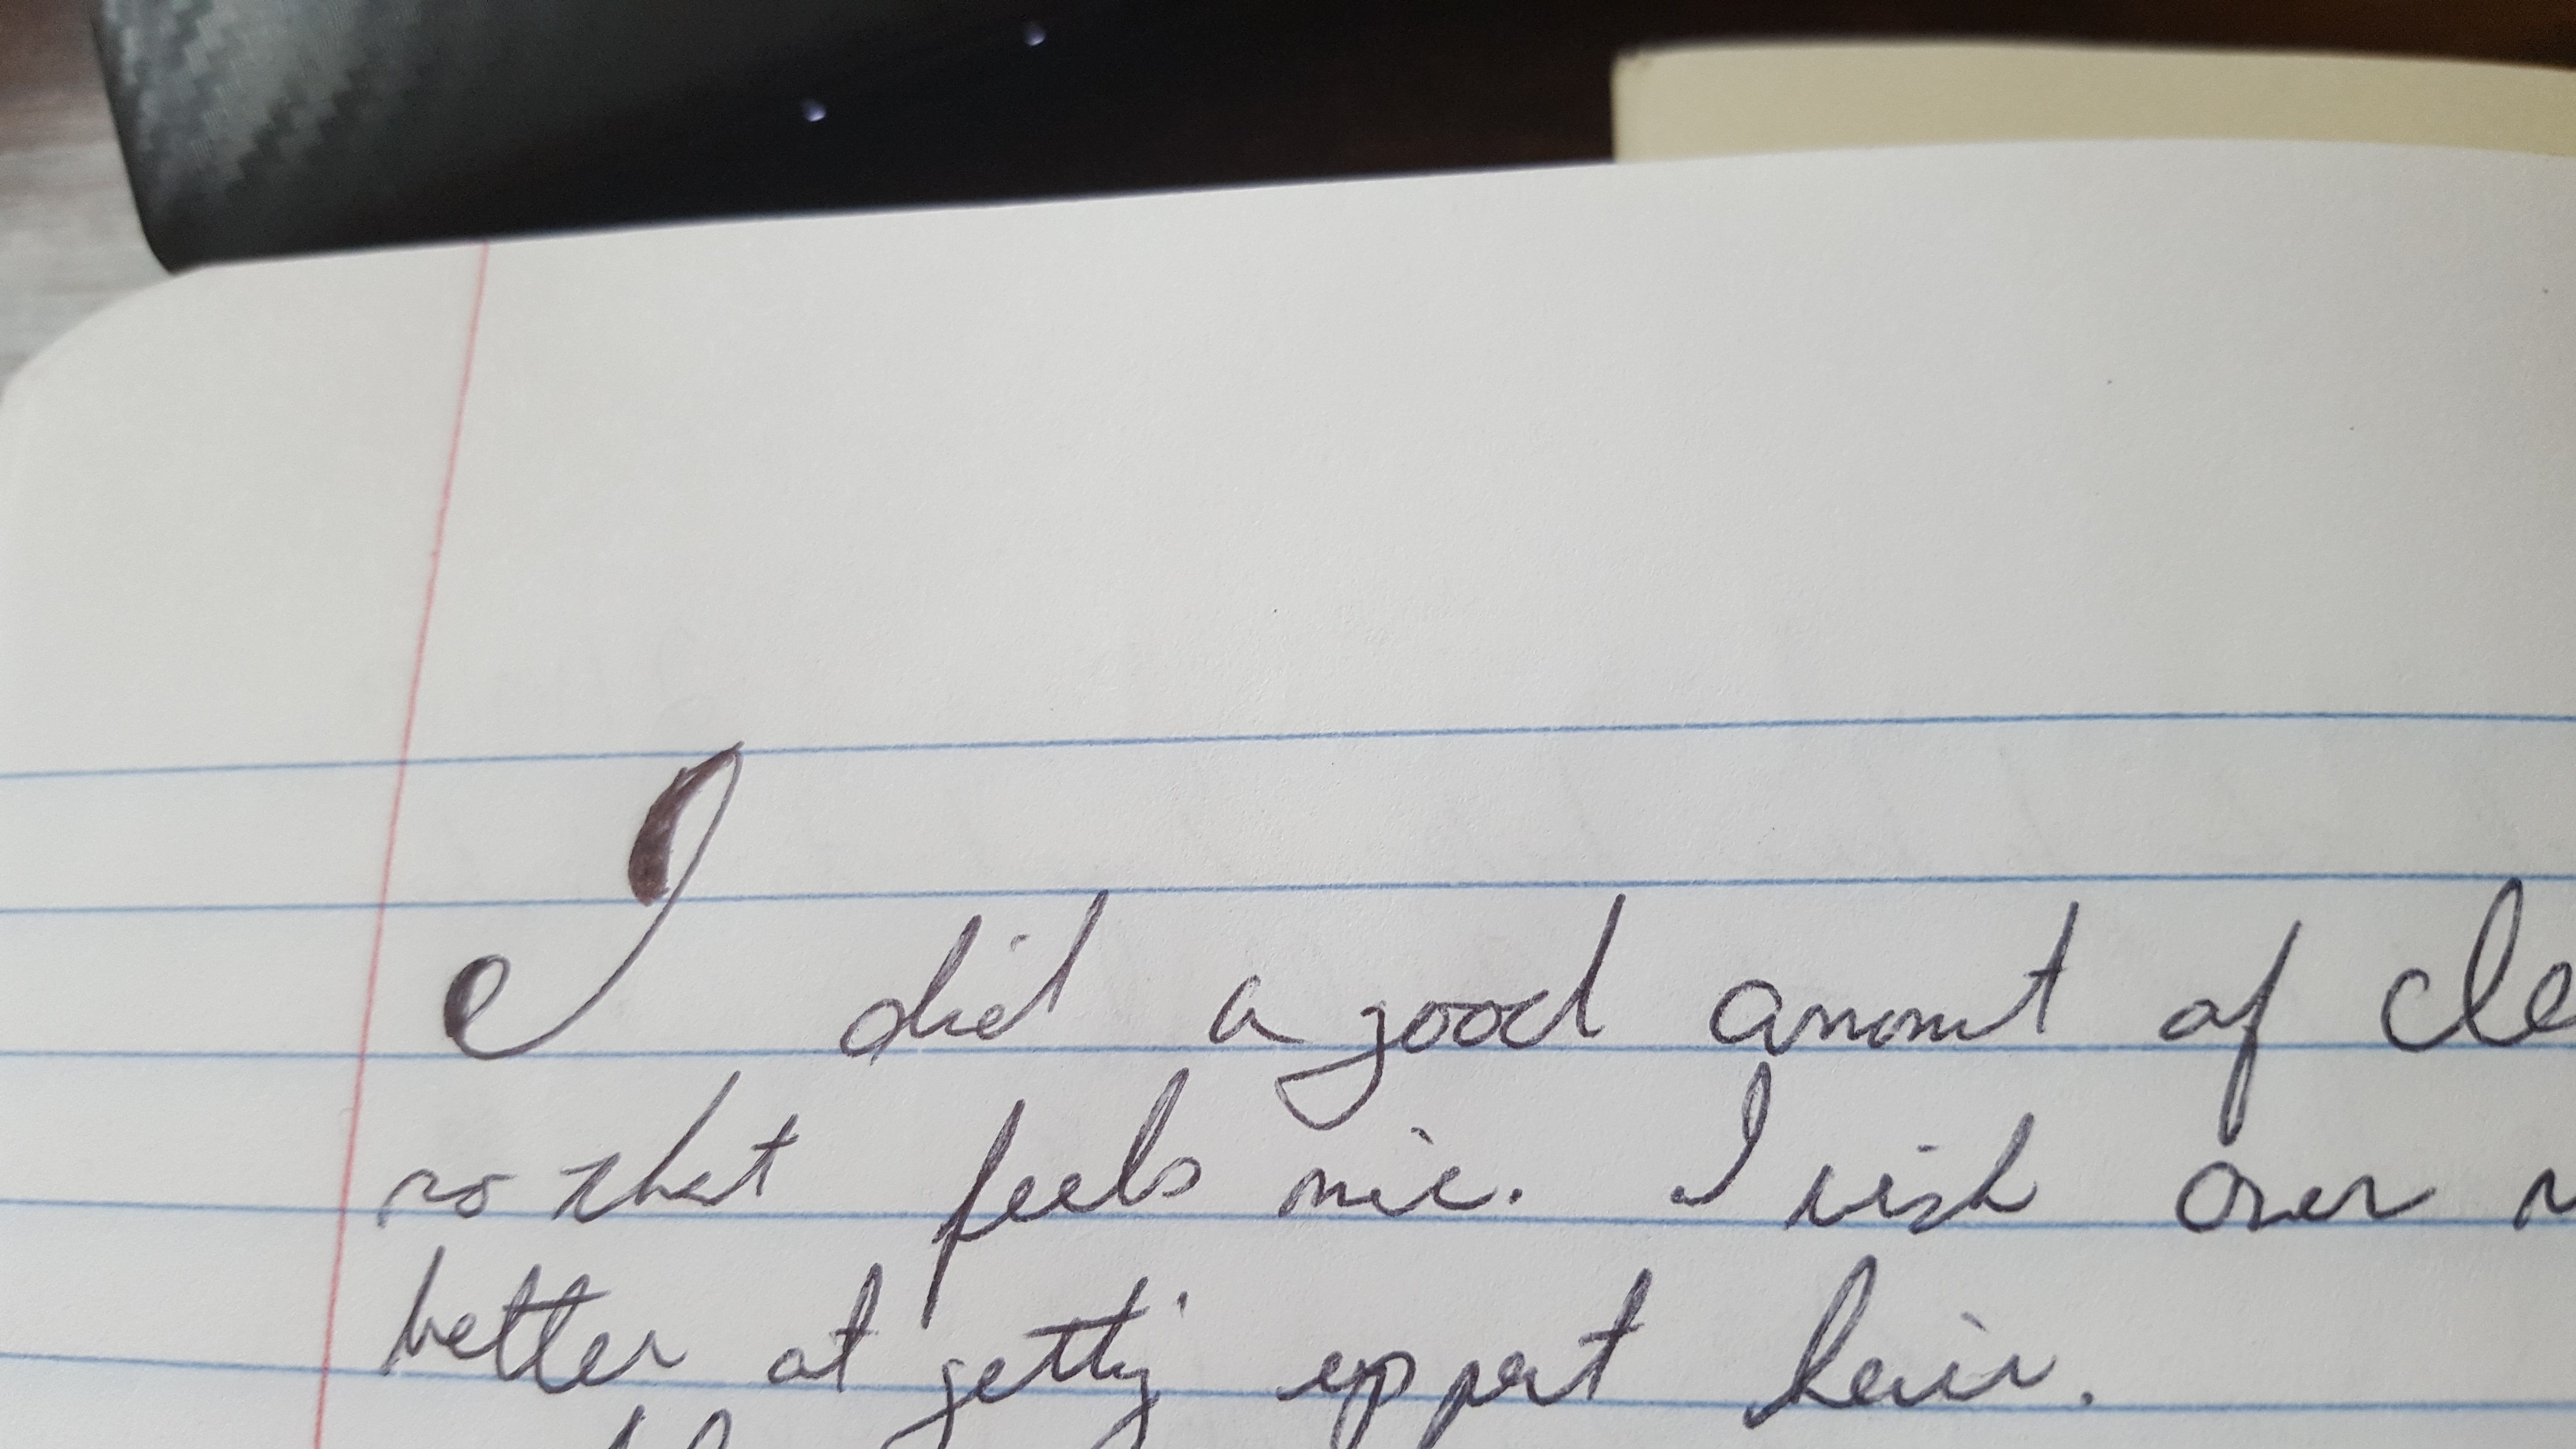 I did a good amount of cle
so that feels nice. I wish over
better at getting up part hair.